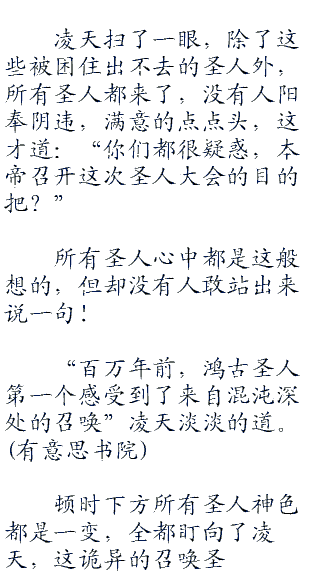 凌天扫了一眼，除了这
些被困住出不去的圣人外，
所有圣人都来了，没有人阳
奉阴违，满意的点点头，这
才道：“你们都很疑惑，本
帝召开这次圣人大会的目的
把？”
所有圣人心中都是这般
想的，但却没有人敢站出来
说一句！
“百万年前，鸿古圣人
第一个感受到了来自混沌深
处的召唤”凌天淡淡的道。
(有意思书院)
顿时下方所有圣人神色
都是一变，全都盯向了凌
天，这诡异的召唤圣